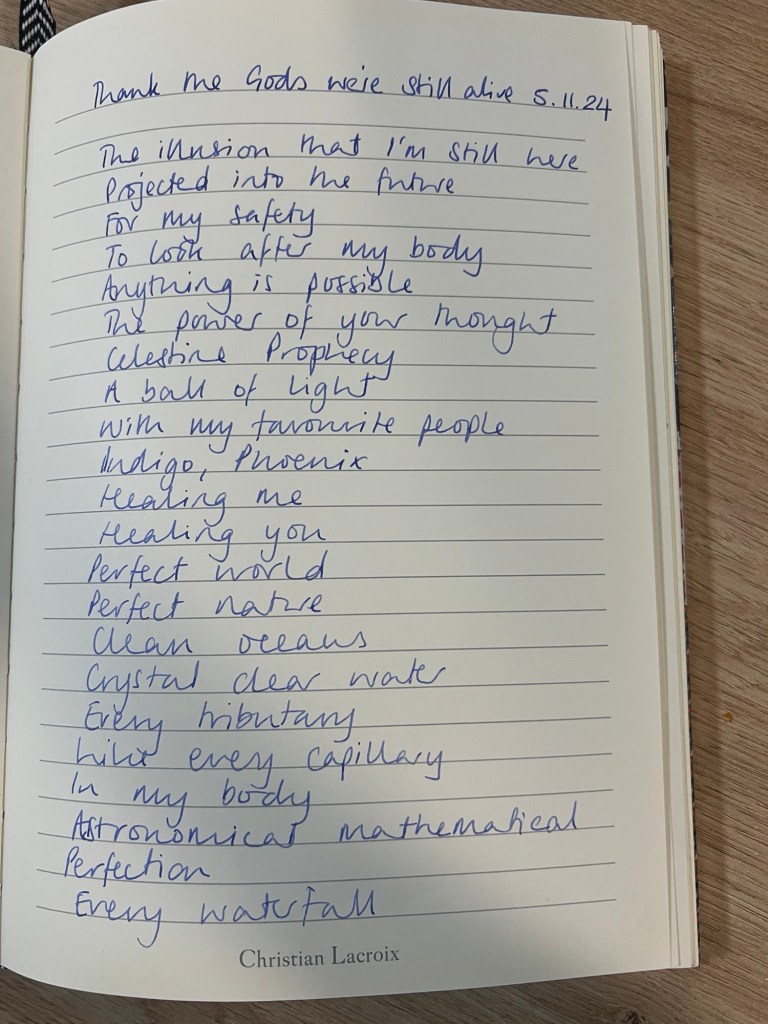 Thank the Gods we're still alive 5.11.24
The illusion that I'm still here
Projected into the future
For my safety
To look after my body
Anything is possible
The power of your thought
Celestine Prophecy
A ball of light
With my favourite people
Indigo, Phoenix
Healing me
Healing you
Perfect world
Perfect nature
Clean oceans
Crystal clear water
Every tributary
Like every capillary
In my body
Astronomical mathematical
Perfection
Every waterfall
Christian Lacroix